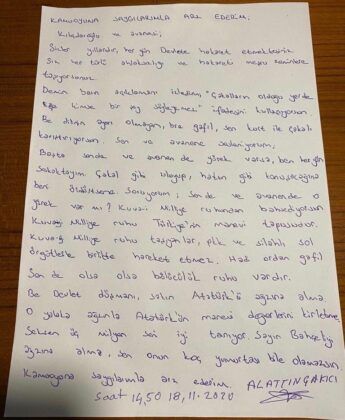 KAMUOYUNA SAYGILARIMLA ARZ EDERİM;
Kılıçdaroğlu ve avanesi;
Sizler yıllardır, her gün Devlete hakaret etmektesiniz
Siz her türlü ahlaksızlığı ve hakareti meşru
taşıyorsunuz.
Demin basın açıklamanı izledim, "Çakalların olduğu yerde
kimse bir şey söyleyemez" ifadesini kullanıyorsun.
Be dilsiz ayrı olmayan, bre gafil, sen kurt ile çakalı
karıştırıyorsun. Sen ve avanene sesleniyorum;
Başta sende ve avanen de yürek varsa, ben her gün
Sokaktayım Çakal gibi uluyup, hatun gibi konuşacağına
beri öldürtsene Soruyorum; Sende ve avanende o
yürek var mı? Kuvai Milliye ruhundan bahsediyorsun
Kuvayi Milliye ruhu Türkiye'nin manevi tapusudur.
Kuvayi Milliye ruhu taşıyanlar, pkk ve silahlı sol
örgütlerle birlikte hareket etmez. Had ordan gafil
Sen de olsa olsa bölücülük ruhu vardır.
Be Devlet düşmanı, sakın Atatürk'ü ağzına alma.
O ağzınla Atatürk'ün manevi değerlerin kirletme.
Seksen üç milyon seni iyi tanıyor. Sayın Bahçeliyi
ağzına alma, sen onun koç yumurtası bile olamazsın.
Kamuoyuna saygılarımla arz ederim. ALATTİN ÇAKICI
saat 14,50 18,11,2020